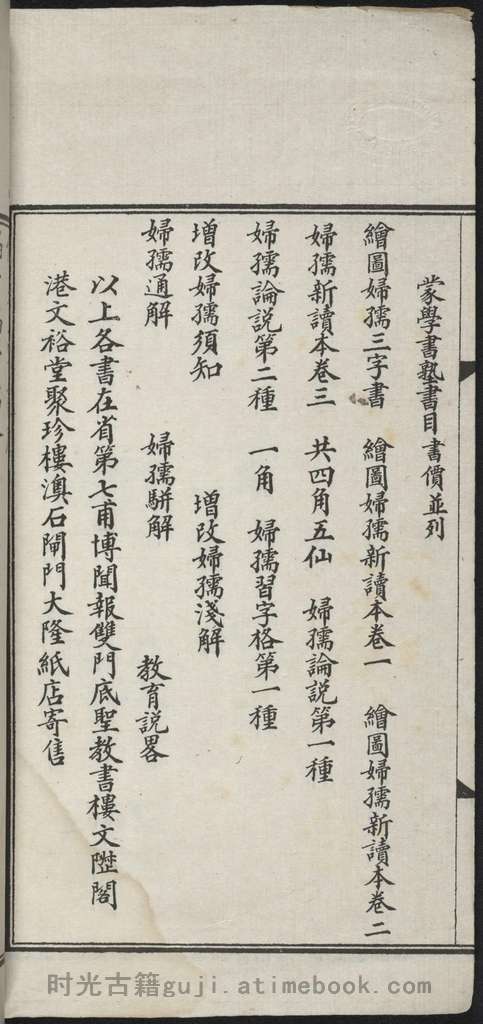 蒙學書塾書目 書價並列
繪圖婦孺三字書 繪圖婦孺新讀本卷一 繪圖婦孺新讀本卷二
婦孺新讀本卷三 共四角五仙 婦孺論説第一種
婦孺論説第二種 一角 婦孺習字格第一種
增改婦孺須知 增改婦孺淺解
婦孺通解 婦孺駢解 教育説畧
以上各書在省第七甫博聞報雙門底聖教書樓文陞閣
港文裕堂聚珍樓澳石閘門大隆紙店寄售
时光古籍guji.atimebook.com